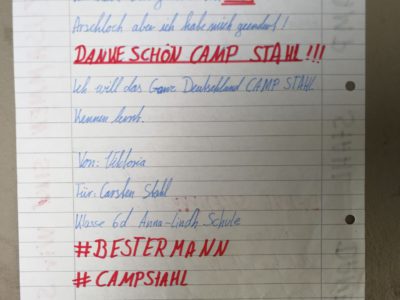 Arschloch aber ich habe mich geändert!
DANKE SCHÖN CAMP STAHL!!!
Ich will das Ganz Deutschland CAMP STAHL
kennen lernt.
Von: Viktoria
Für: Carsten Stahl
Klasse 6d Anna-Lindh Schule
#BESTERMANN
#CAMPSTAHL